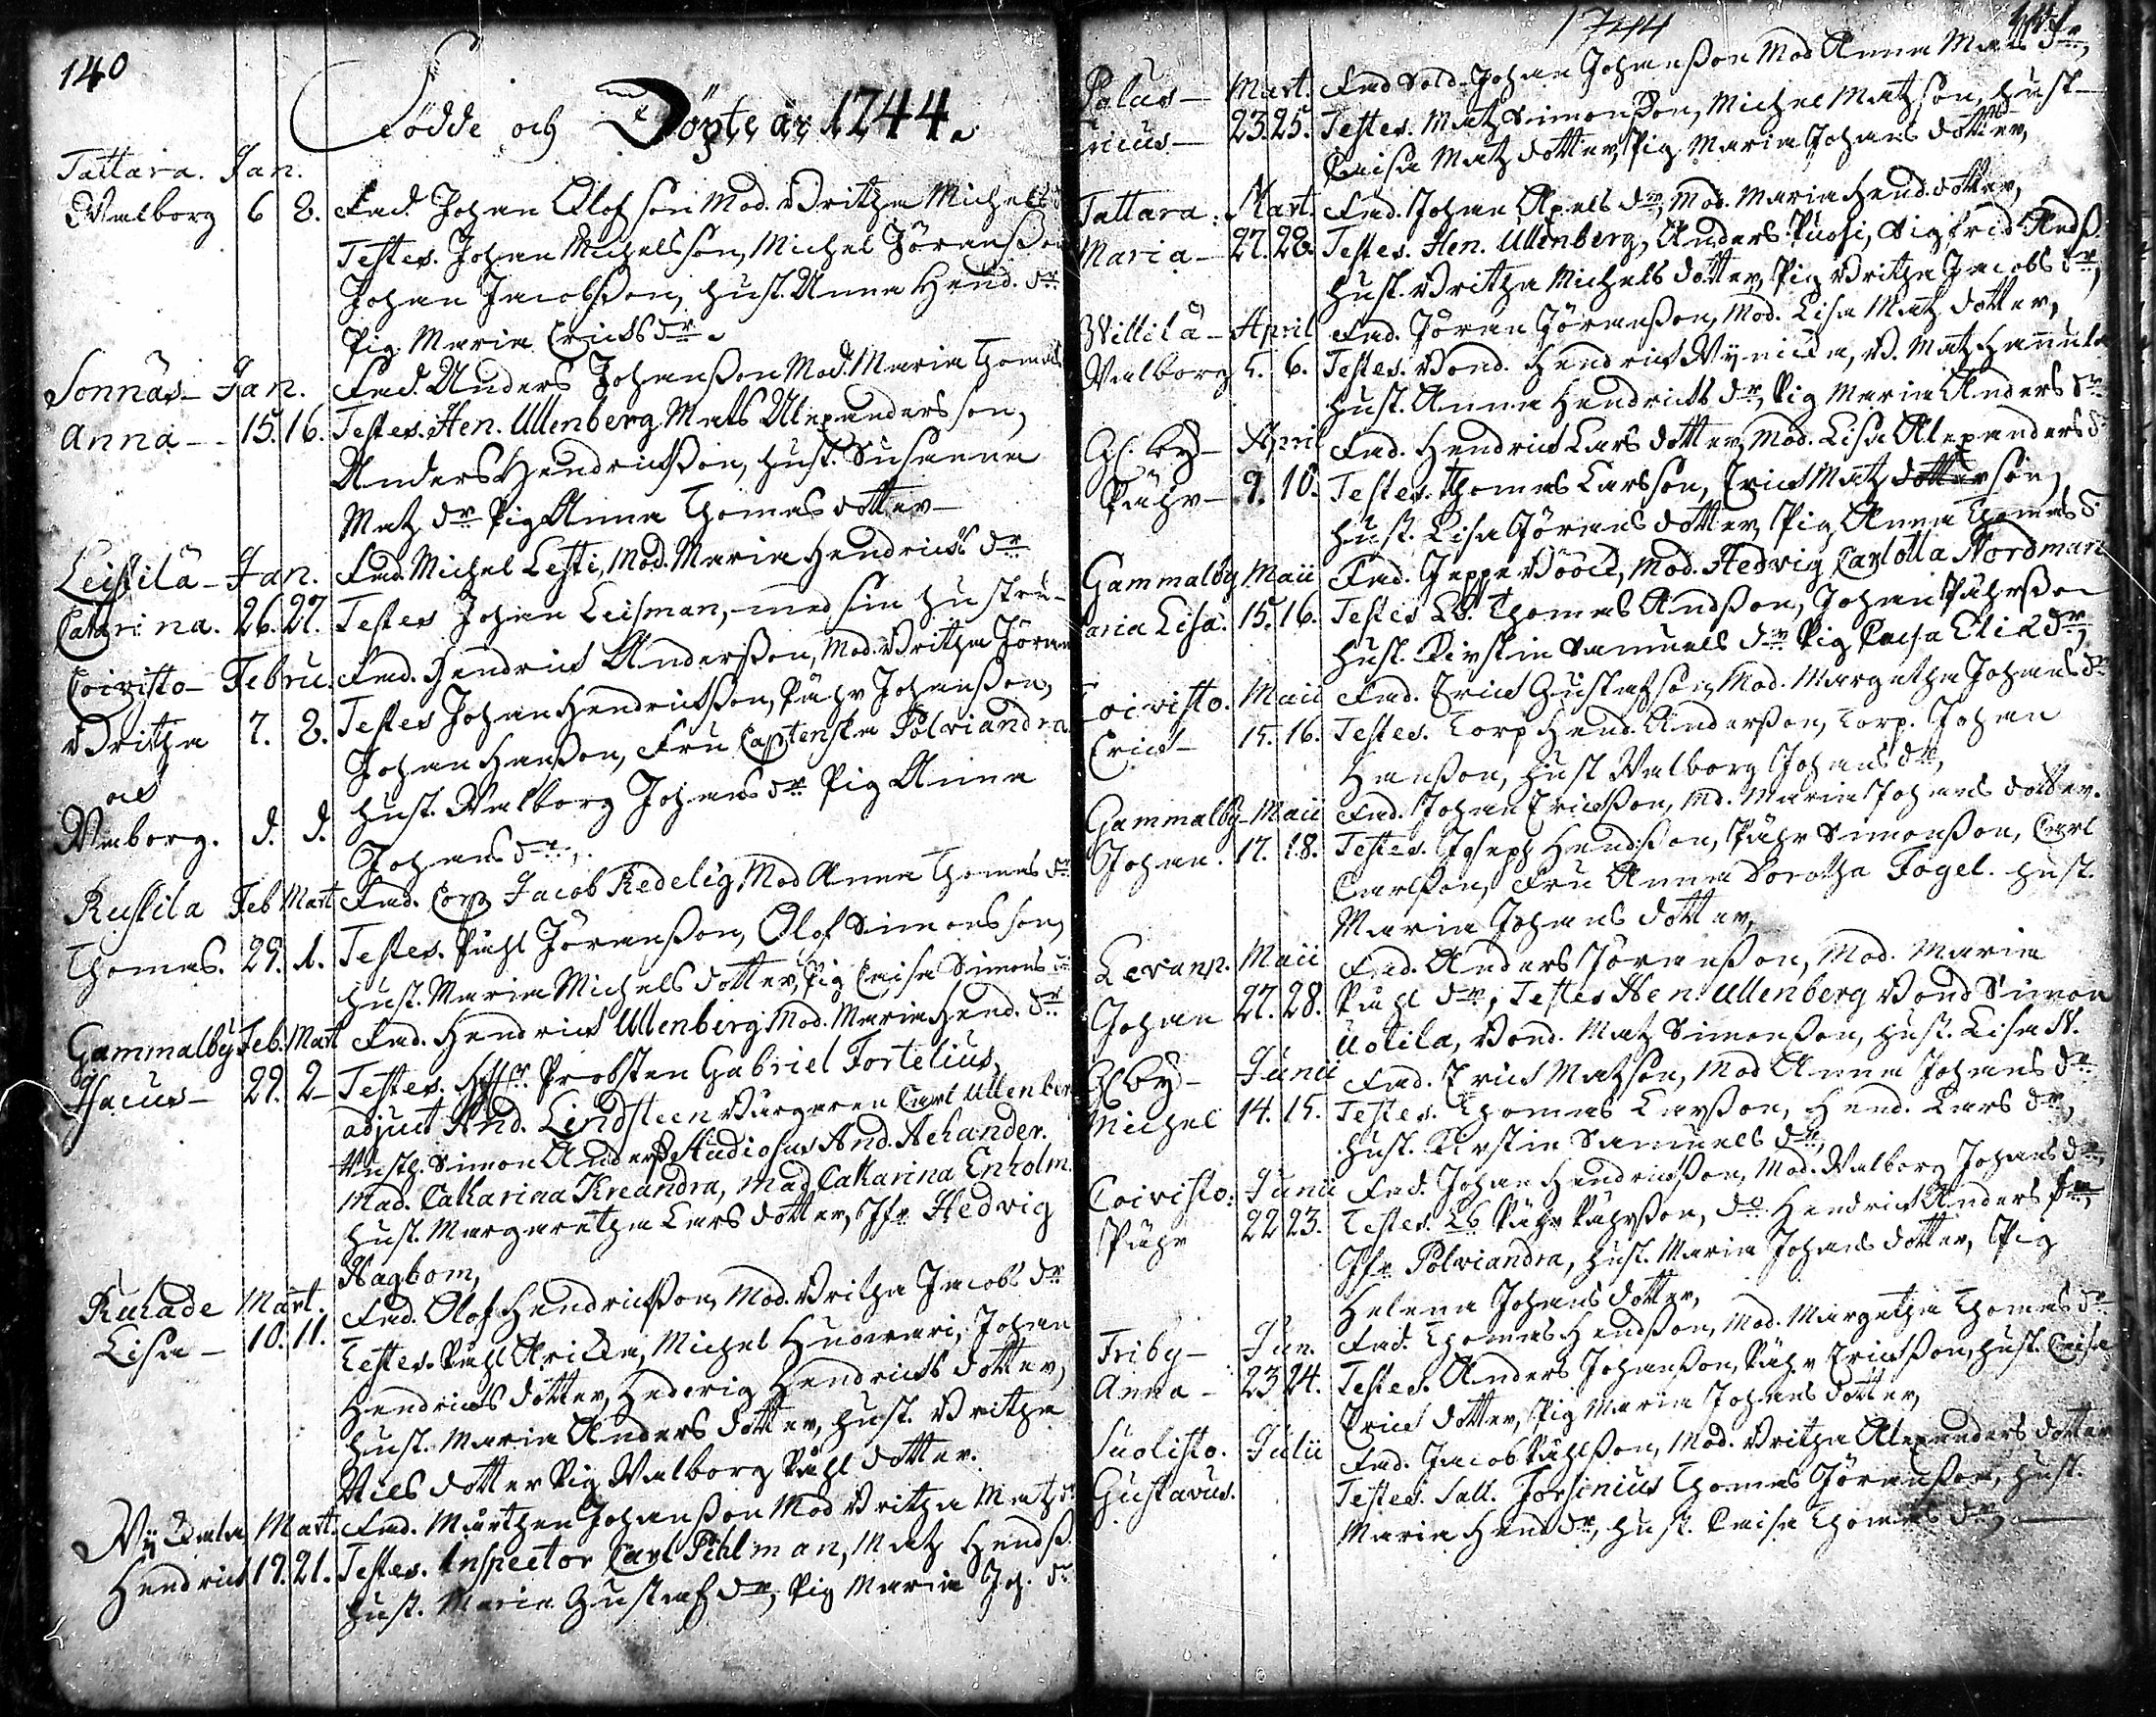 140
Födde och Döpte år 1744.
Tattara. Jan.
Walborg 6 8. Fad. Johan Olofson Mod. Britha Michels
Testes. Johan Michelsson, Michel Jöransson
Johan Jacobsson, hust. Anna Hend. dr
Pig. Maria Ericks dr.
Sonnäs - Jan. Fad. Anders Johansson Mod. Maria Thomas
Anna - - 15. 16. Testes. Hen. Ullenberg Mats Alexandersson,
Anders Hendricksson, hust. Susanna
Matz dr Pig Anna Thomas dotter -
Leistilä - Jan. Fad. Michel Lesti, Mod. Maria Hendricks dr
Catharina. 26. 27. Testes Johan Leisman, med sin hustru -
Coivisto - Febru. Fad. Hendrick Andersson, Mod. Britha Jöran
Britha 7. 8. Testes Johan Hendricksson, Påhr Johansson,
och Johan Hansson, Fru Captenska Polviandra
Waborg. d. d. hust. Walborg Johans dr Pig Anna
Johans dr,
Rustila Feb Mart Fad. Corp Jacob Redelig Mod Anna Thomas dr
Thomas. 29. 1. Testes. Påhl Jöransson, Olof Simonsson,
hust. Maria Michels dotter, Pig Caisa Simons dr
Gammalby Feb. Mart Fad. Hendrick Ullenberg Mod. Maria Hend. dr
Isacus - 29. 2 - Testes. H. Hr. Probsten Gabriel Fortelius,
adjunct And. Lindsteen Borgaren Carl Ullenber
Anders Studiosus And. Achander.
Mad. Catharina Kreandra, Mad Catharina Enholm.
hust. Margaretha Lars dotter, Jfr Hedvig
Hagbom,
Kulade Mart. Fad. Olof Hendricksson, Mod. Britha Jacobs dr
Lisa - 10. 11. Testes. Påhl Michel Huovari, Johan
Hendricks dotter, Hedevig Hendricks dotter,
hust. Maria Anders dotter, hust. Britha
Nils dotter Pig Walborg Påhl dotter.
Mart. Fad. Mårthen Johansson Mod Britha Matz dr
Hendrick 19. 21. Testes. Inspector Carl Pihlman, Matz Hends
hust. Maria Gustaf dr, Pig Maria Joh. dr
1744
Palus - Mart. Fad Sold. Johan Johansson Mod Anna Mats dr,
ricus - 23. 25. Testes. Matz Simonsson, Michel Matzson, hust -
Caisa Matz dotter, Pig Maria Johans dotter,
Tattara. Mart. Fad. Johan Axels dr, Mod. Maria Hend. dotter,
Maria - 27. 28. Testes. Hen. Ullenberg, Anders Puosi, Sigfrid Ands
hust. Britha Michels dotter, Pig Britha Jacobs dr,
Willilä - April Fad. Jöran Jöransson, Mod. Lisa Matz dotter,
Walborg 5. 6. Testes. Bond. Hendrick B. Matz Hannula
hust. Anna Hendricks dr, Pig Maria Anders dr
Gl. by - April Fad. Hendrick Lars dotter, Mod. Lisa Alexanders dr
Påhr - 9. 10. Testes. Thomas Larsson, Erick Matz dotter son,
hust. Lisa Jörans dotter, Pig Anna Thomas dr
Gammalby Maii Fad. Jeppe Boock, Mod. Hedvig Carlotta Nordman
aria Lisa. 15. 16. Testes Lb. Thomas Andsson, Johan Påhrsson
hust. Kirstin Samuels dr Pig Caisa Elia dr,
Coivisto. Maii Fad. Erick Gustafson, Mod. Margetha Johans dr
Erick - 15. 16. Testes. Torp Hend. Andersson, Torp. Johan
Hansson, hust Walborg Johans dr,
Gammalby - Maii Fad. Johan Ericksson, Md. Maria Johans dotter.
Johan. 17. 18. Testes. Joseph Hendsson, Påhr Simonsson, Carl
Carlsson, Fru Anna Dorotha Fogel. hust.
Maria Johans dotter,
Levanp. Maii Fad. Anders Jöransson, Mod. Maria
Johan 27. 28. Påhl dr, Testes Hen. Ullenberg Bond Simon
Uotila, Bond. Matz Simonsson, hust. Lisa N.
Gl by - Junii Fad. Erick Matzson, Mod Anna Johans dr
Michel 14. 15. Testes. Thomas Larsson, Hend. Lars dr,
hust. Kirstin Samuels dr,
Coivisto. Junii Fad. Johan Hendricksson, Mod. Walborg Johans dr,
Påhr 22 23. Testes. Lb Påhr Påhrsson, do Hendrick Anders dr,
Jfr Polviandra, hust. Maria Johans dotter, Pig
Helena Johans dotter,
Friby - Jun. Fad. Thomas Hendsson, Mod. Margetha Thomas dr
Anna - 23 24. Testes. Anders Johansson, Påhr Ericksson, hust. Caisa
Erick dotter, Pig Maria Johans dotter,
Suolisto. Julii Fad. Jacob Påhlsson, Mod. Britha Alexanders dotter
Gustavus. Testes. Sall. Forsinius Thomas Jöransson, hust.
Maria Hend dr, hust. Caisa Thomas dr, -